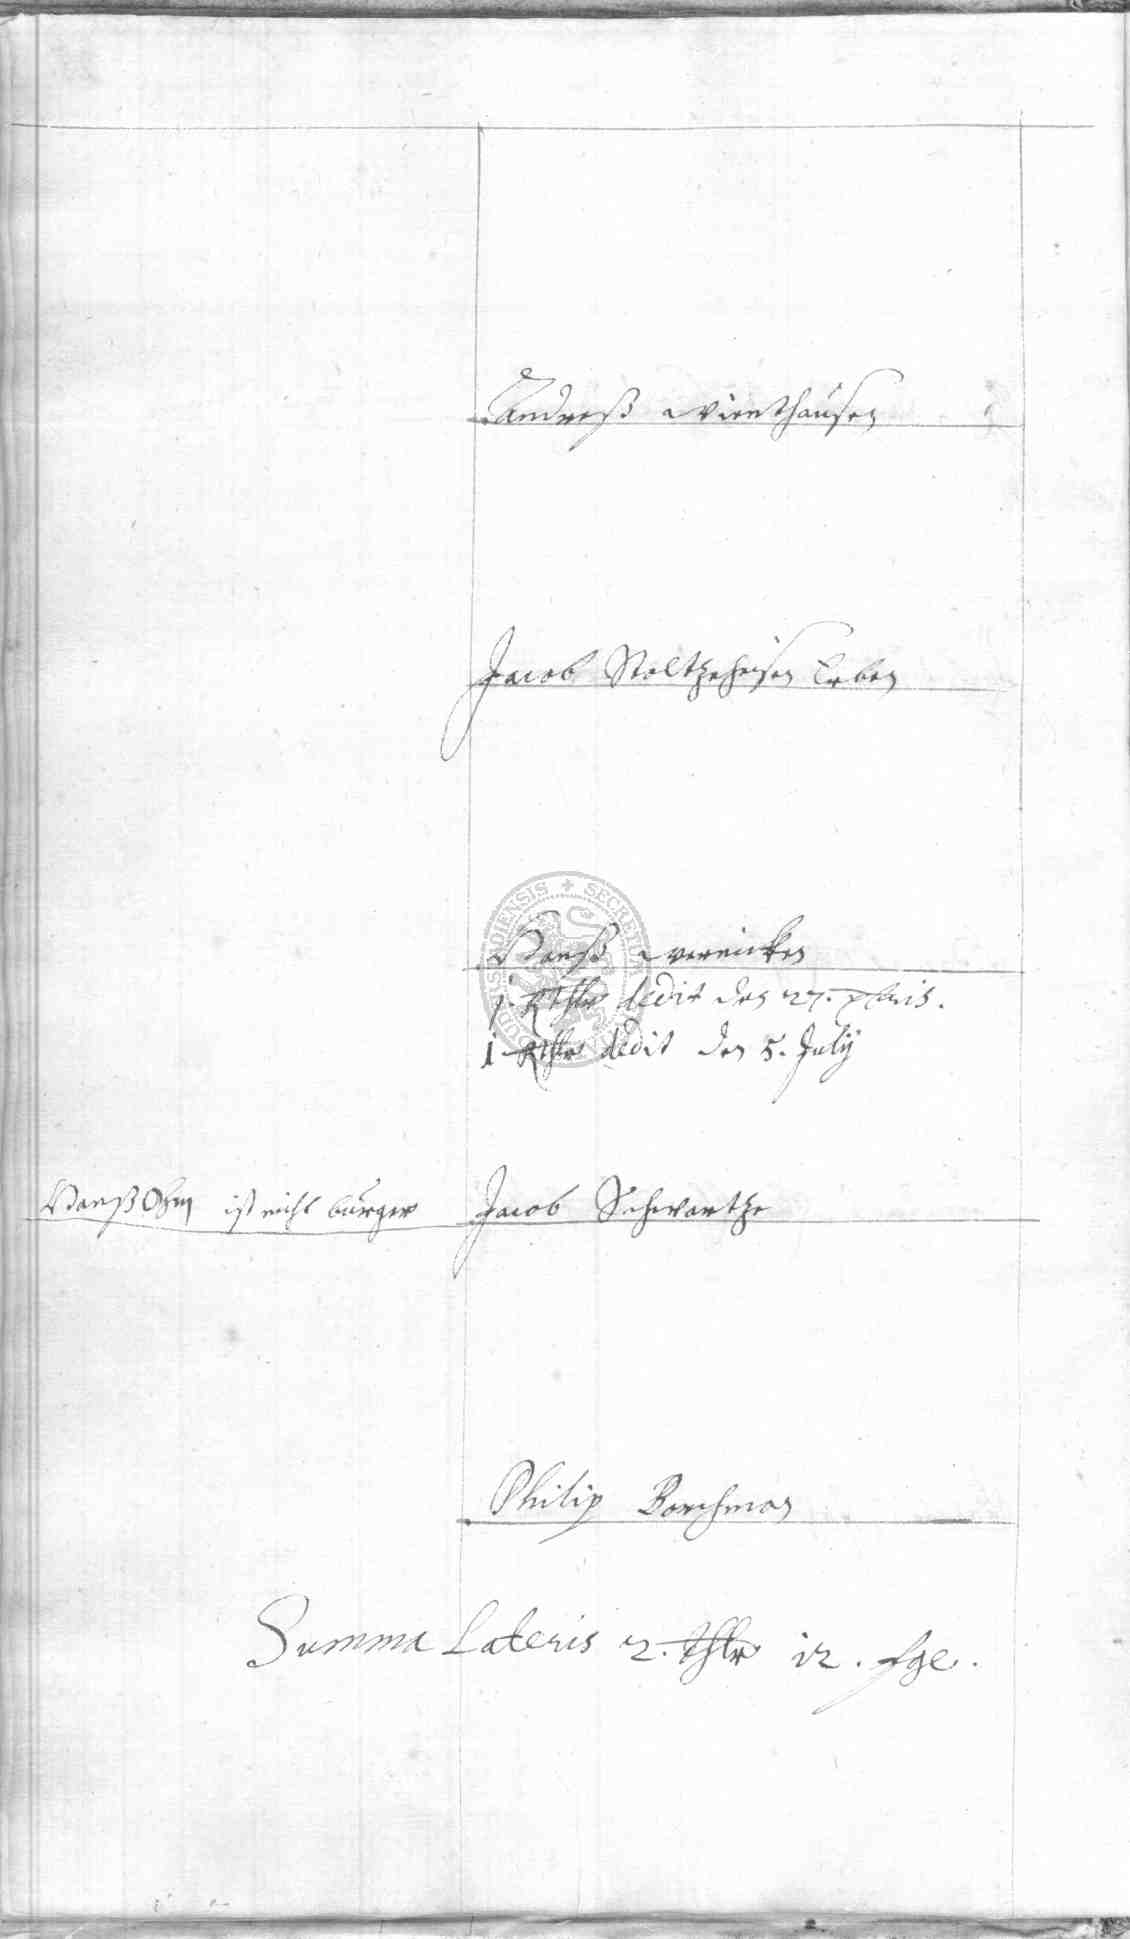 Andreß Wienthausen
Jacob Stoltzeheisen Erben
Hanß Wernicken
j. Rthlr dedit den 27.
1 Rthlr dedit den 5. July
Hanß Ohm ist nicht burger Jacob Schwartze
Philip Borchman
Summa Lateris 2. thlr 12. fge.
SECRETUM